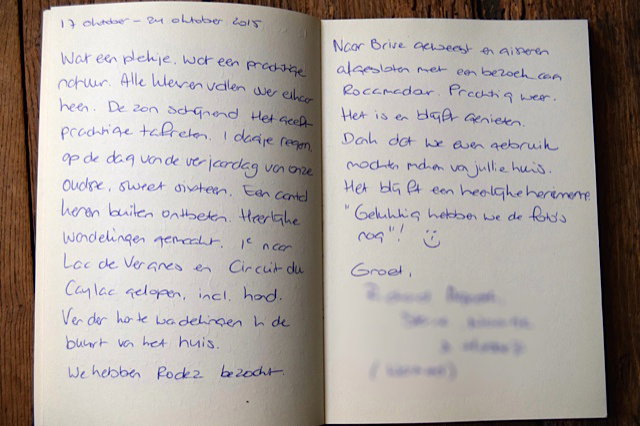 17 oktober - 24 oktober 2015
Wat een plekje, wat een prachtige
natuur. Alle kleuren vallen over elkaar
heen. De zon schijnend het geeft
prachtige taferelen. 1 dagje regen,
op de dag van de verjaardag van onze
oudste, sweet sixteen. Een aantal
keren buiten ontbeten. Heerlijke
wandelingen gemaakt. 1e naar
Lac de Vergnes en Circuit du
Caylac gelopen, incl. hond.
Verder korte wandelingen in de
buurt van het huis.
We hebben Rodez bezocht.
Naar Brive geweest en gisteren
afgesloten met een bezoek aan
Rocamadar. Prachtig weer.
Het is en blijft genieten.
Dank dat we even gebruik
mochten maken van jullie huis.
Het blijft een heerlijke herinnering.
"Gelukkig hebben we de foto's
nog"!
Groet,